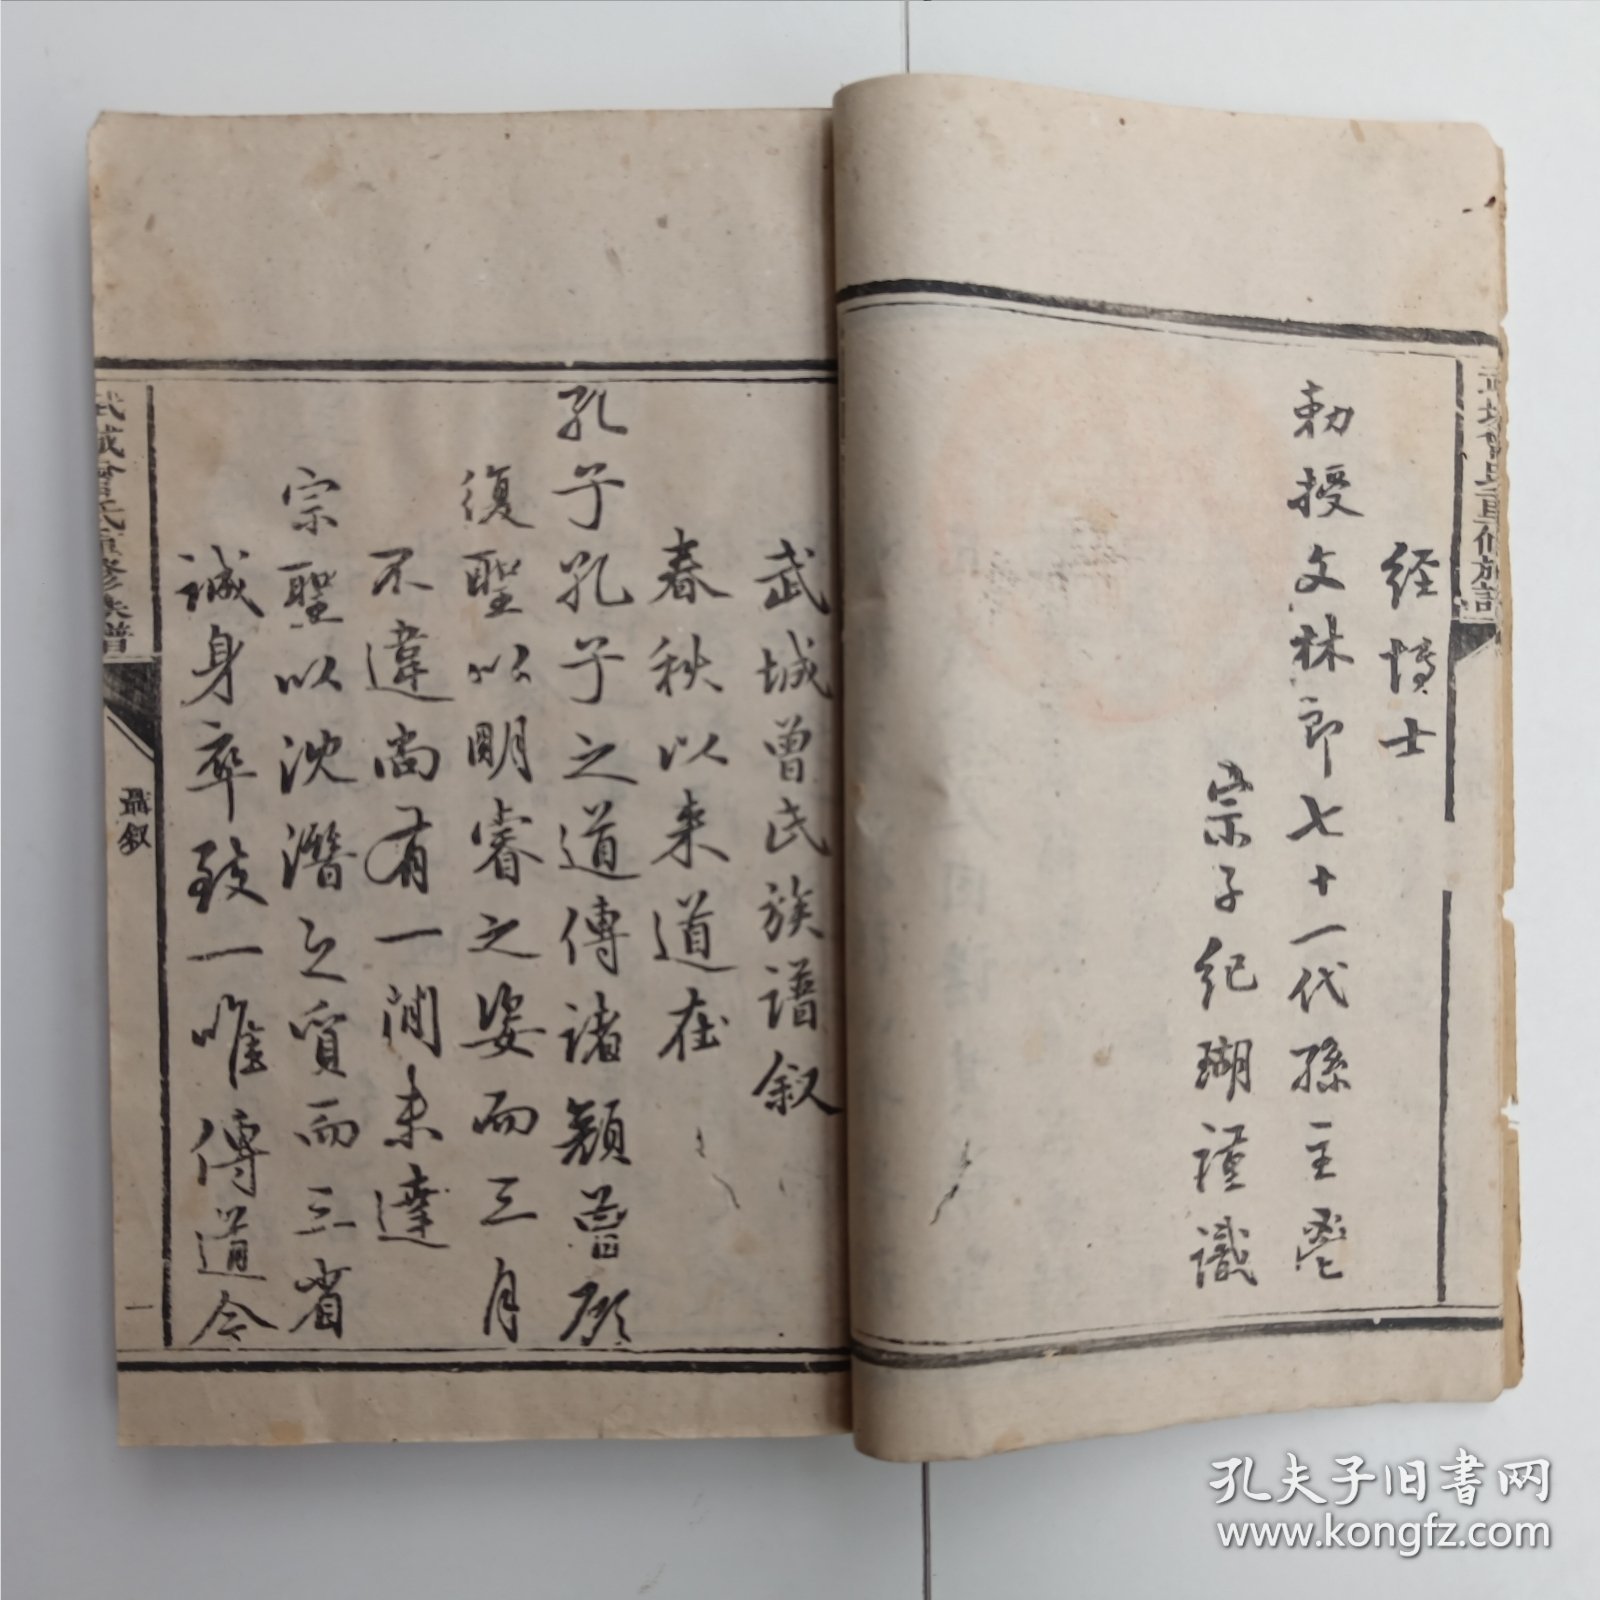 武城曾氏重修族譜
经博士
勅授文林郎七十一代孫主鬯
宗子纪瑚謹識
武城曾氏族譜叙
春秋以来道在
孔子孔子之道傳諸顏曾顧
復聖以明睿之姿而三月
不違尚有一间未達
宗聖以沈潛之質而三省
誠身卒致一唯傳道今
武城曾氏重修族譜
聶叙
一
孔夫子旧书网
www.kongfz.com